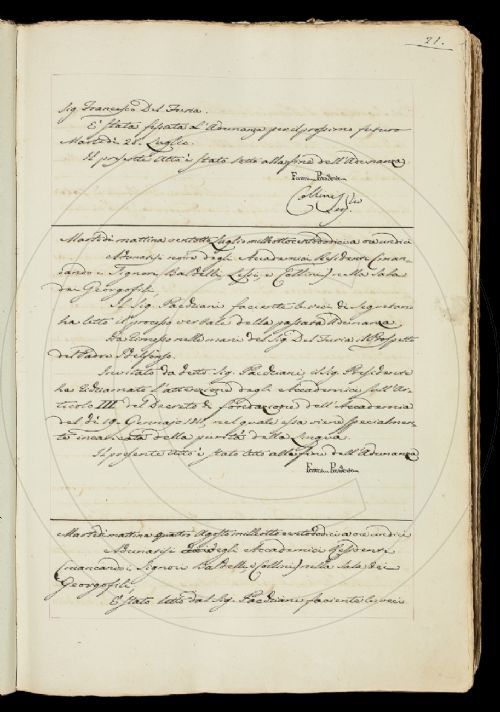 21.
Sig. Francesco Del Furia.
È stata fissata l'Adunanza per il prossimo futuro
Martedì 28. Luglio.
Il presente Atto è stato letto alla fine dell'Adunanza
Collini
Martedì mattina ventotto Luglio milleottocentododici a ore undici
Adunanza degli Accademici Residenti (mancan-
do i Signori Baldelli, Lessi, e Collini) nella Sala
dei Georgofili.
Il Sig. Pacchiani facente le veci di Segretario
ha letto il processo verbale della passata Adunanza
Ha rimesso nelle mani del Sig. Del Furia il Prospetto
del Padre Ildefonso.
Invitato da detto Sig. Pacchiani, il Sig. Presidente
ha richiamato l'attenzione degli Accademici sull'Ar-
ticolo III del Decreto di fondazione dell'Accademia
del dì 19. Gennajo 1811, nel quale essa viene specialmen-
te incaricata della purità della Lingua.
Il presente Atto è stato letto alla fine dell'Adunanza
Martedì mattina quattro Agosto milleottocentododici a ore undici
Adunanza degli Accademici Residenti
(mancando i Signori Baldelli, e Collini) nella Sala dei
Georgofili.
È stato letto dal Sig. Pacchiani facente le veci